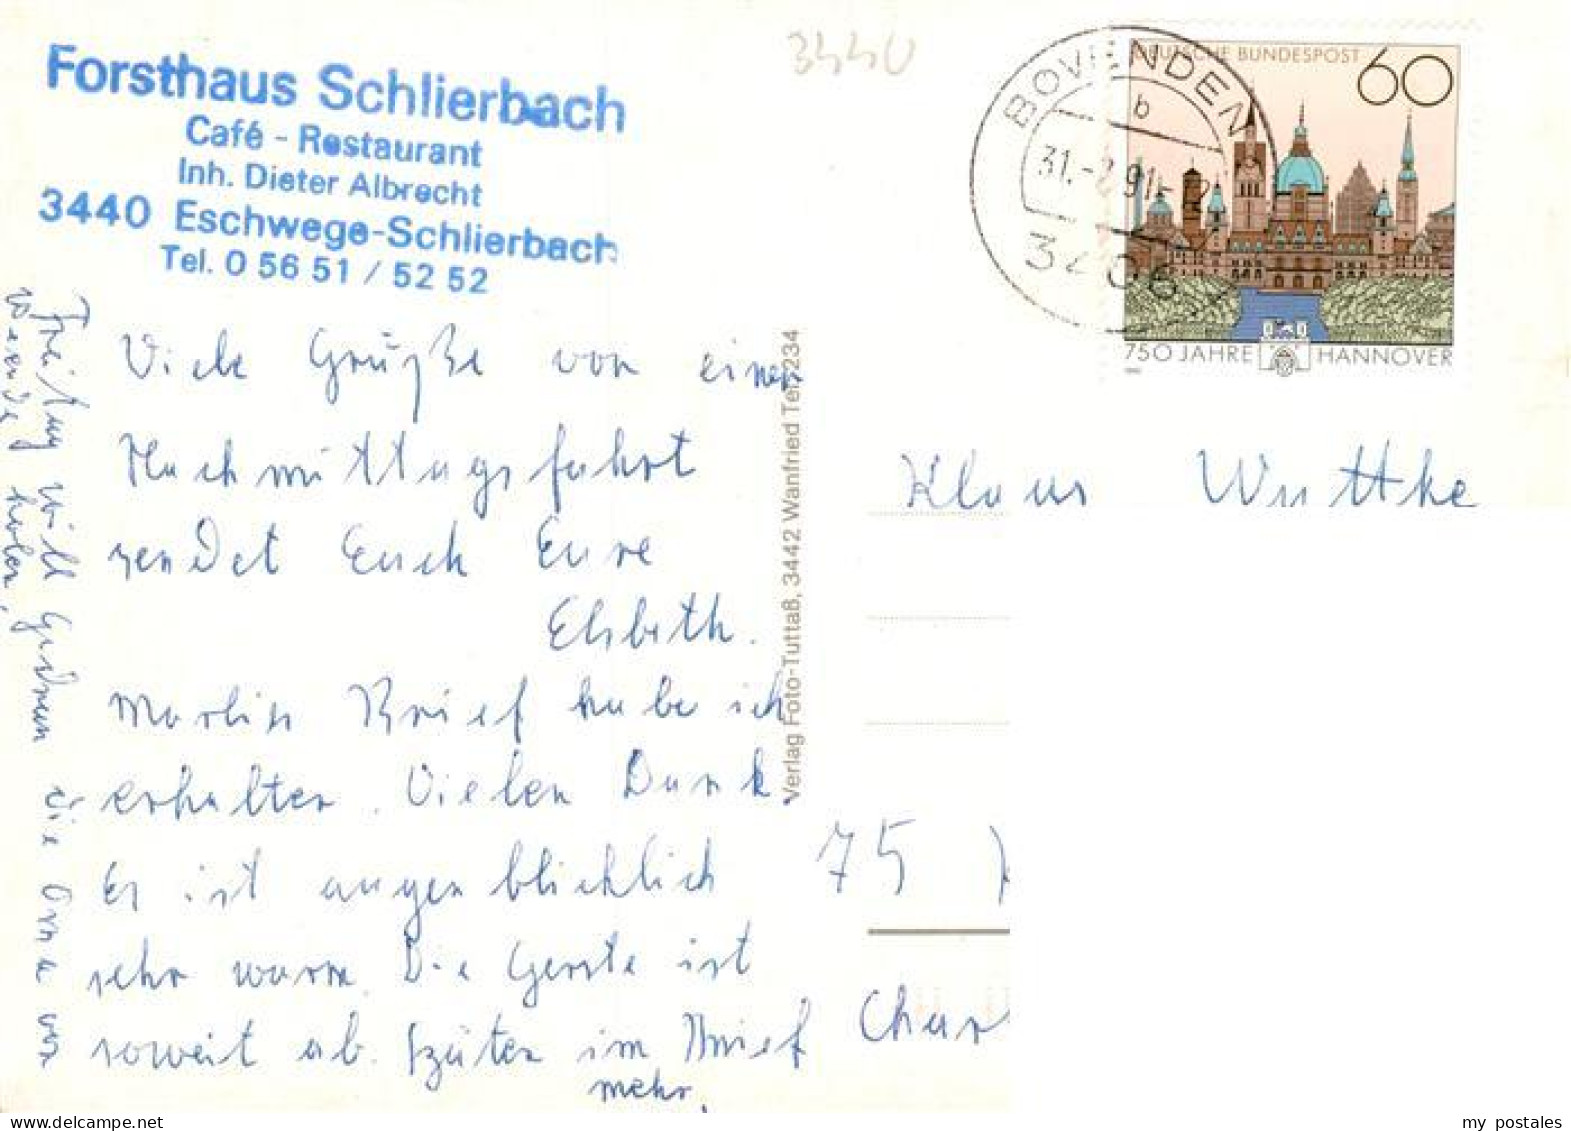 Forsthaus Schlierbach
Café - Restaurant
Inh. Dieter Albrecht
3440 Eschwege-Schlierbach
Tel. 0 56 51 / 52 52
3440
BOVENDEN
b
31.-7.91
3406
DEUTSCHE BUNDESPOST
60
750 JAHRE HANNOVER
Viele Grüße von einer
Nachmittagsfahrt
sendet Euch Eure
Elsbeth.
Marlis Brief habe ich
erhalten. Vielen Dank.
Es ist augenblicklich
sehr warm. Die Gerste ist
soweit ab. Später im Brief
mehr.
Freitag will Gudrun die Oma von
Weende holen,
Verlag Foto-Tuttaß, 3442 Wanfried Tel. 7234
Klaus Wuttke
75
Char
my postales